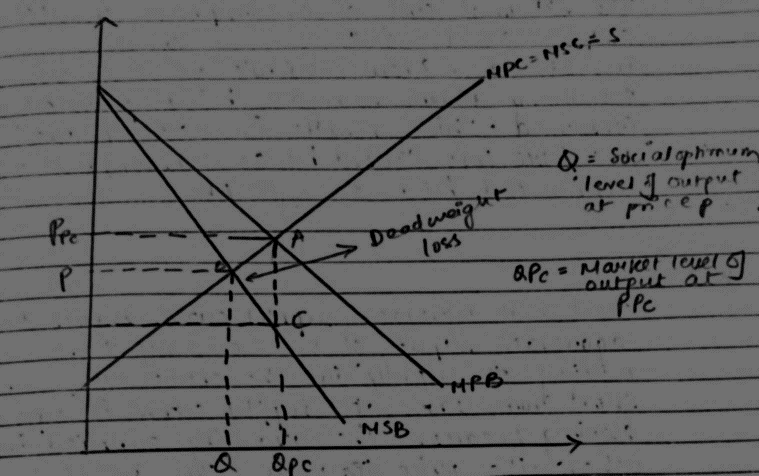 MPC = MSC = S
Q = Social optimum
level of output
at price p
Deadweight
loss
Ppc
A
P
QPC = Market level of
output at
PPC
C
MPB
MSB
Q
QPC